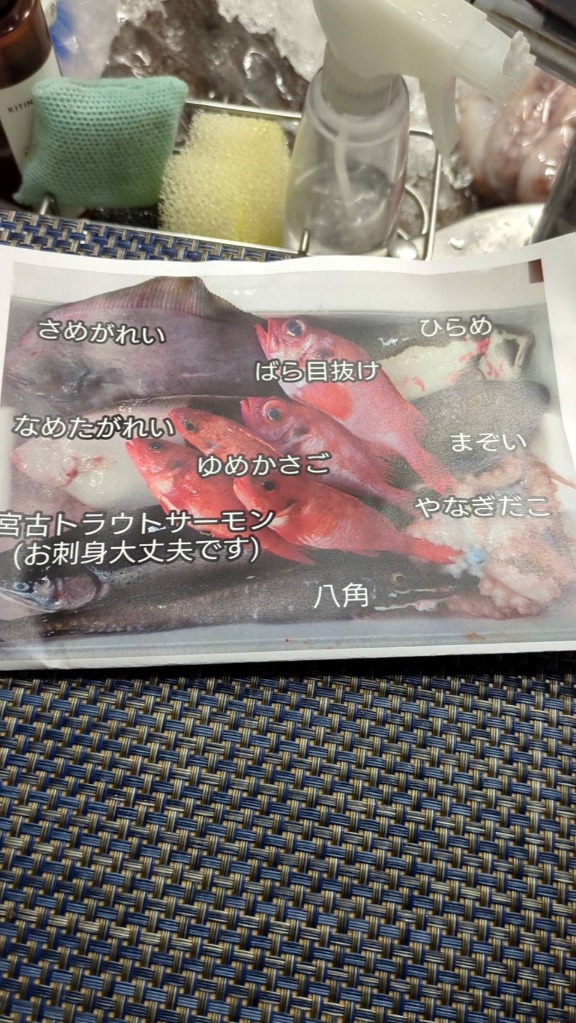 KITIN
さめがれい
ひらめ
ばら目抜け
なめたがれい
まぞい
ゆめかさご
やなぎだこ
宮古トラウトサーモン
(お刺身大丈夫です)
八角